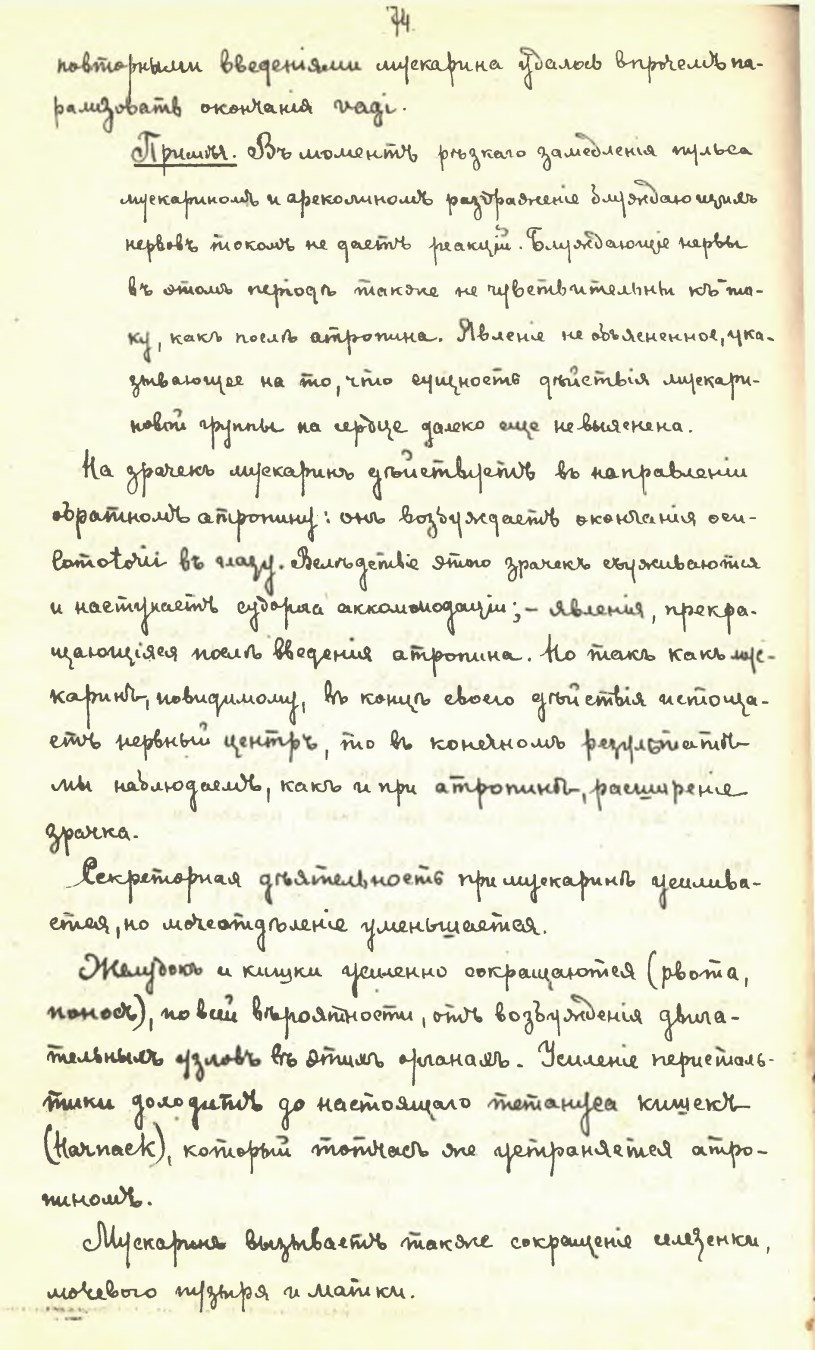 74
повторными введеніями мускарина удалось впрочемъ па-
рализовать окончанія vagi.
Примѣч. Въ моментъ рѣзкаго замедленія пульса
мускариномъ и ареколиномъ раздраженіе блуждающихъ
нервовъ токомъ не даетъ реакціи. Блуждающіе нервы
въ этомъ періодѣ также не чувствительны къ то-
ку, какъ послѣ атропина. Явленіе не объясненное, ука-
зывающее на то, что сущность дѣйствія мускари-
новой группы на сердце далеко еще не выяснена.
На зрачекъ мускаринъ дѣйствуетъ въ направленіи
обратномъ атропину: онъ возбуждаетъ окончанія ocu-
lomotorii въ глазу. Вслѣдствіе этого зрачекъ съуживаются
и наступаетъ судорга аккомомодаціи; – явленія, прекра-
щающіяся послѣ введенія атропина. Но такъ какъ мус-
каринъ, повидимому, въ концѣ своего дѣйствія истоща-
етъ нервный центръ, то въ конечномъ результатѣ
мы наблюдаемъ, какъ и при атропинѣ, расширеніе
зрачка.
Секреторная дѣятельность при мускаринѣ усилива-
ется, но мочеотдѣленіе уменьшается.
Желудокъ и кишки усиленно сокращаются (рвота,
поносъ), по всей вѣроятности, отъ возбужденія двига-
тельныхъ узловъ въ этихъ органахъ. Усиленіе перисталь-
тики доходитъ до настоящаго тетануса кишекъ
(Harnack), который тотчасъ же устраняется атро-
пиномъ.
Мускаринъ вызываетъ также сокращеніе селезенки,
мочевого пузыря и матки.